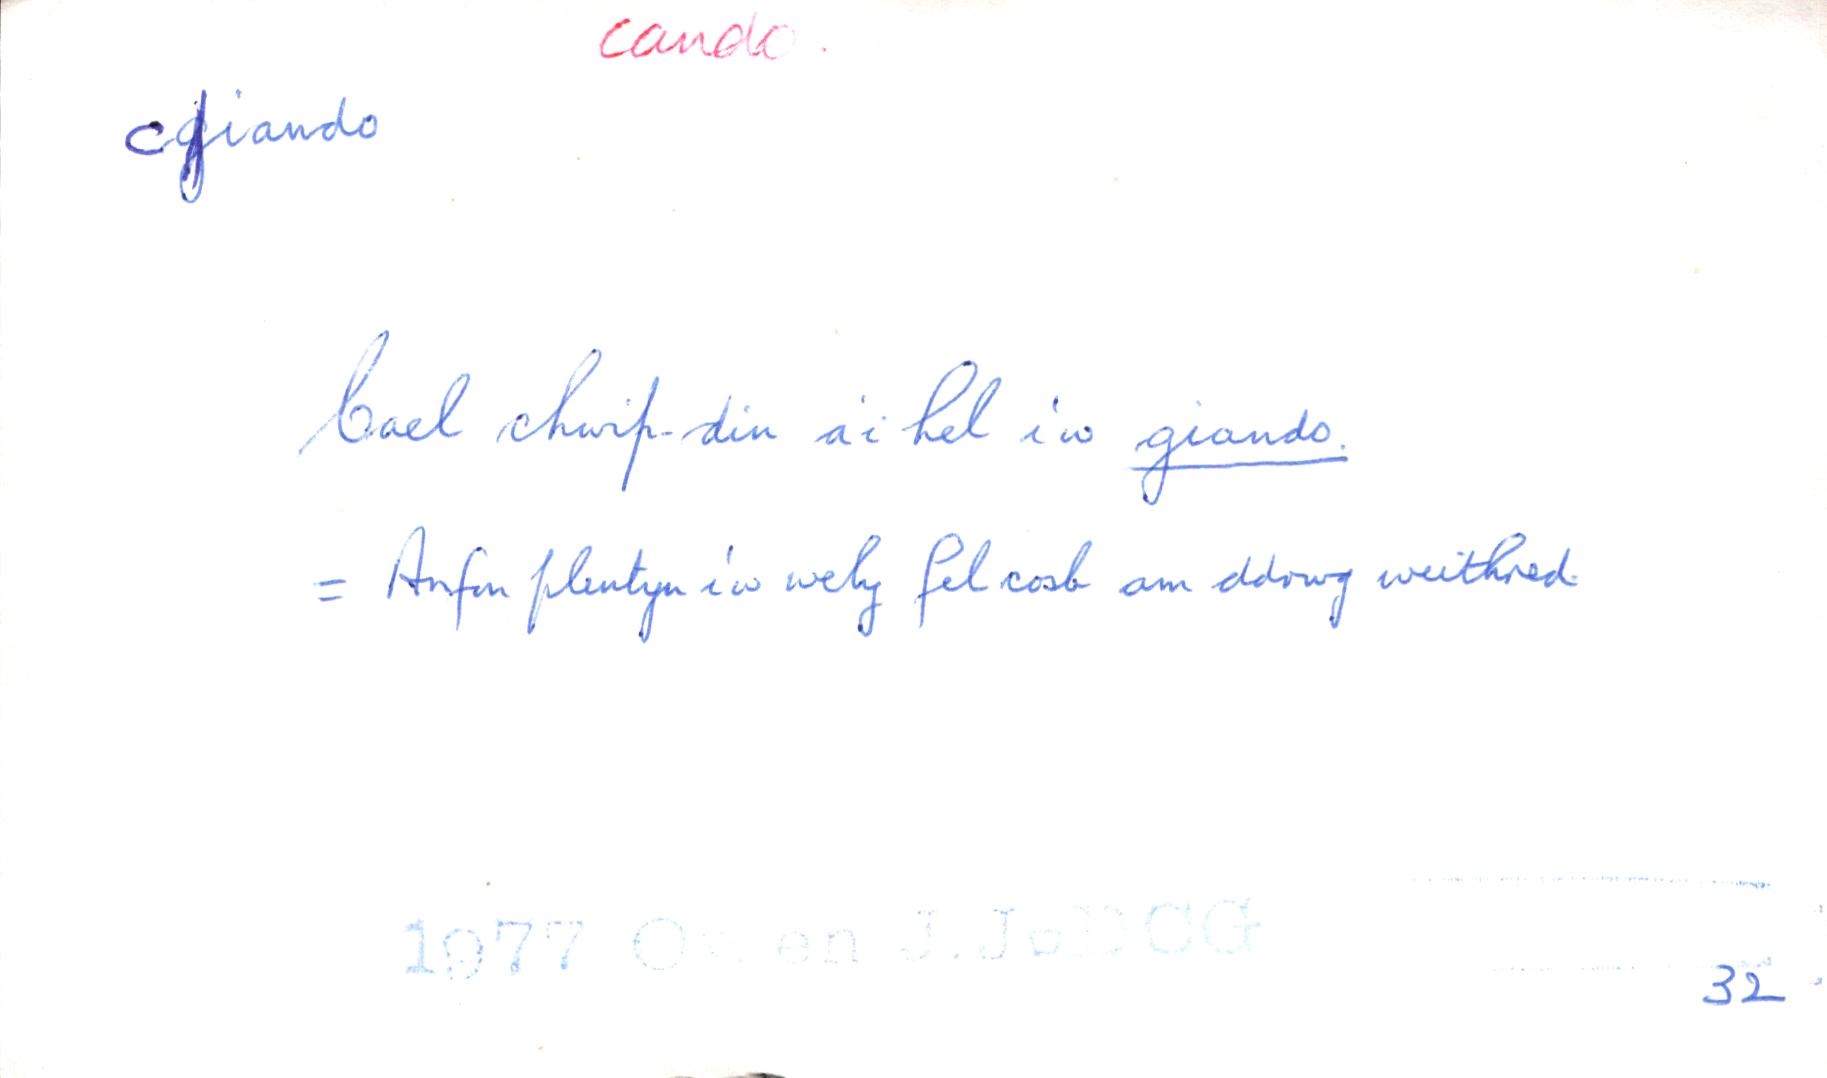 cando.
cgiando
Cael chwip-din a'i hel i'w giando.
= Anfon plentyn i'w wely fel cosb am ddrwg weithred.
1977 Owen J.J. DCG
32